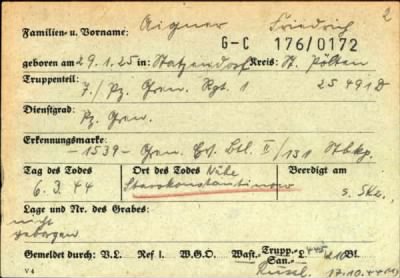 Familien- u. Vorname: Aigner Friedrich 2
G-C 176/0172
geboren am 29.1.25 in: Statzendorf Kreis: St. Pölten
Truppenteil: 7./Pz. Gren. Rgt. 1 25 491 D
Dienstgrad Pz. Gren.
Erkennungsmarke: -1539- Gren. Ers. Btl. II/131 Stbkp.
Tag des Todes Ort des Todes Nähe Beerdigt am
6.3.44 Starokonstantinow s. Skz.
Lage und Nr. des Grabes:
nicht
geborgen
Gemeldet durch: V.L. Ref I. W.G.O. Wast.- Trupp.- San.- L
17.10.44
V 4